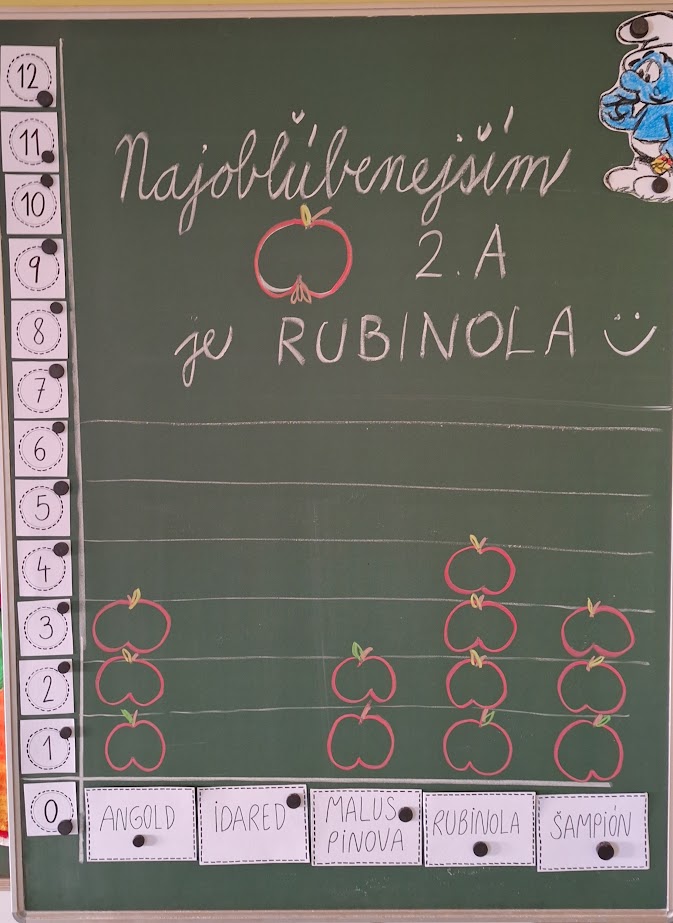 12
11
10
9
8
7
6
5
4
3
2
1
0
Najobľúbenejším
2. A
je RUBINOLA
ANGOLD
IDARED
MALUS
PINOVA
RUBINOLA
ŠAMPIÓN